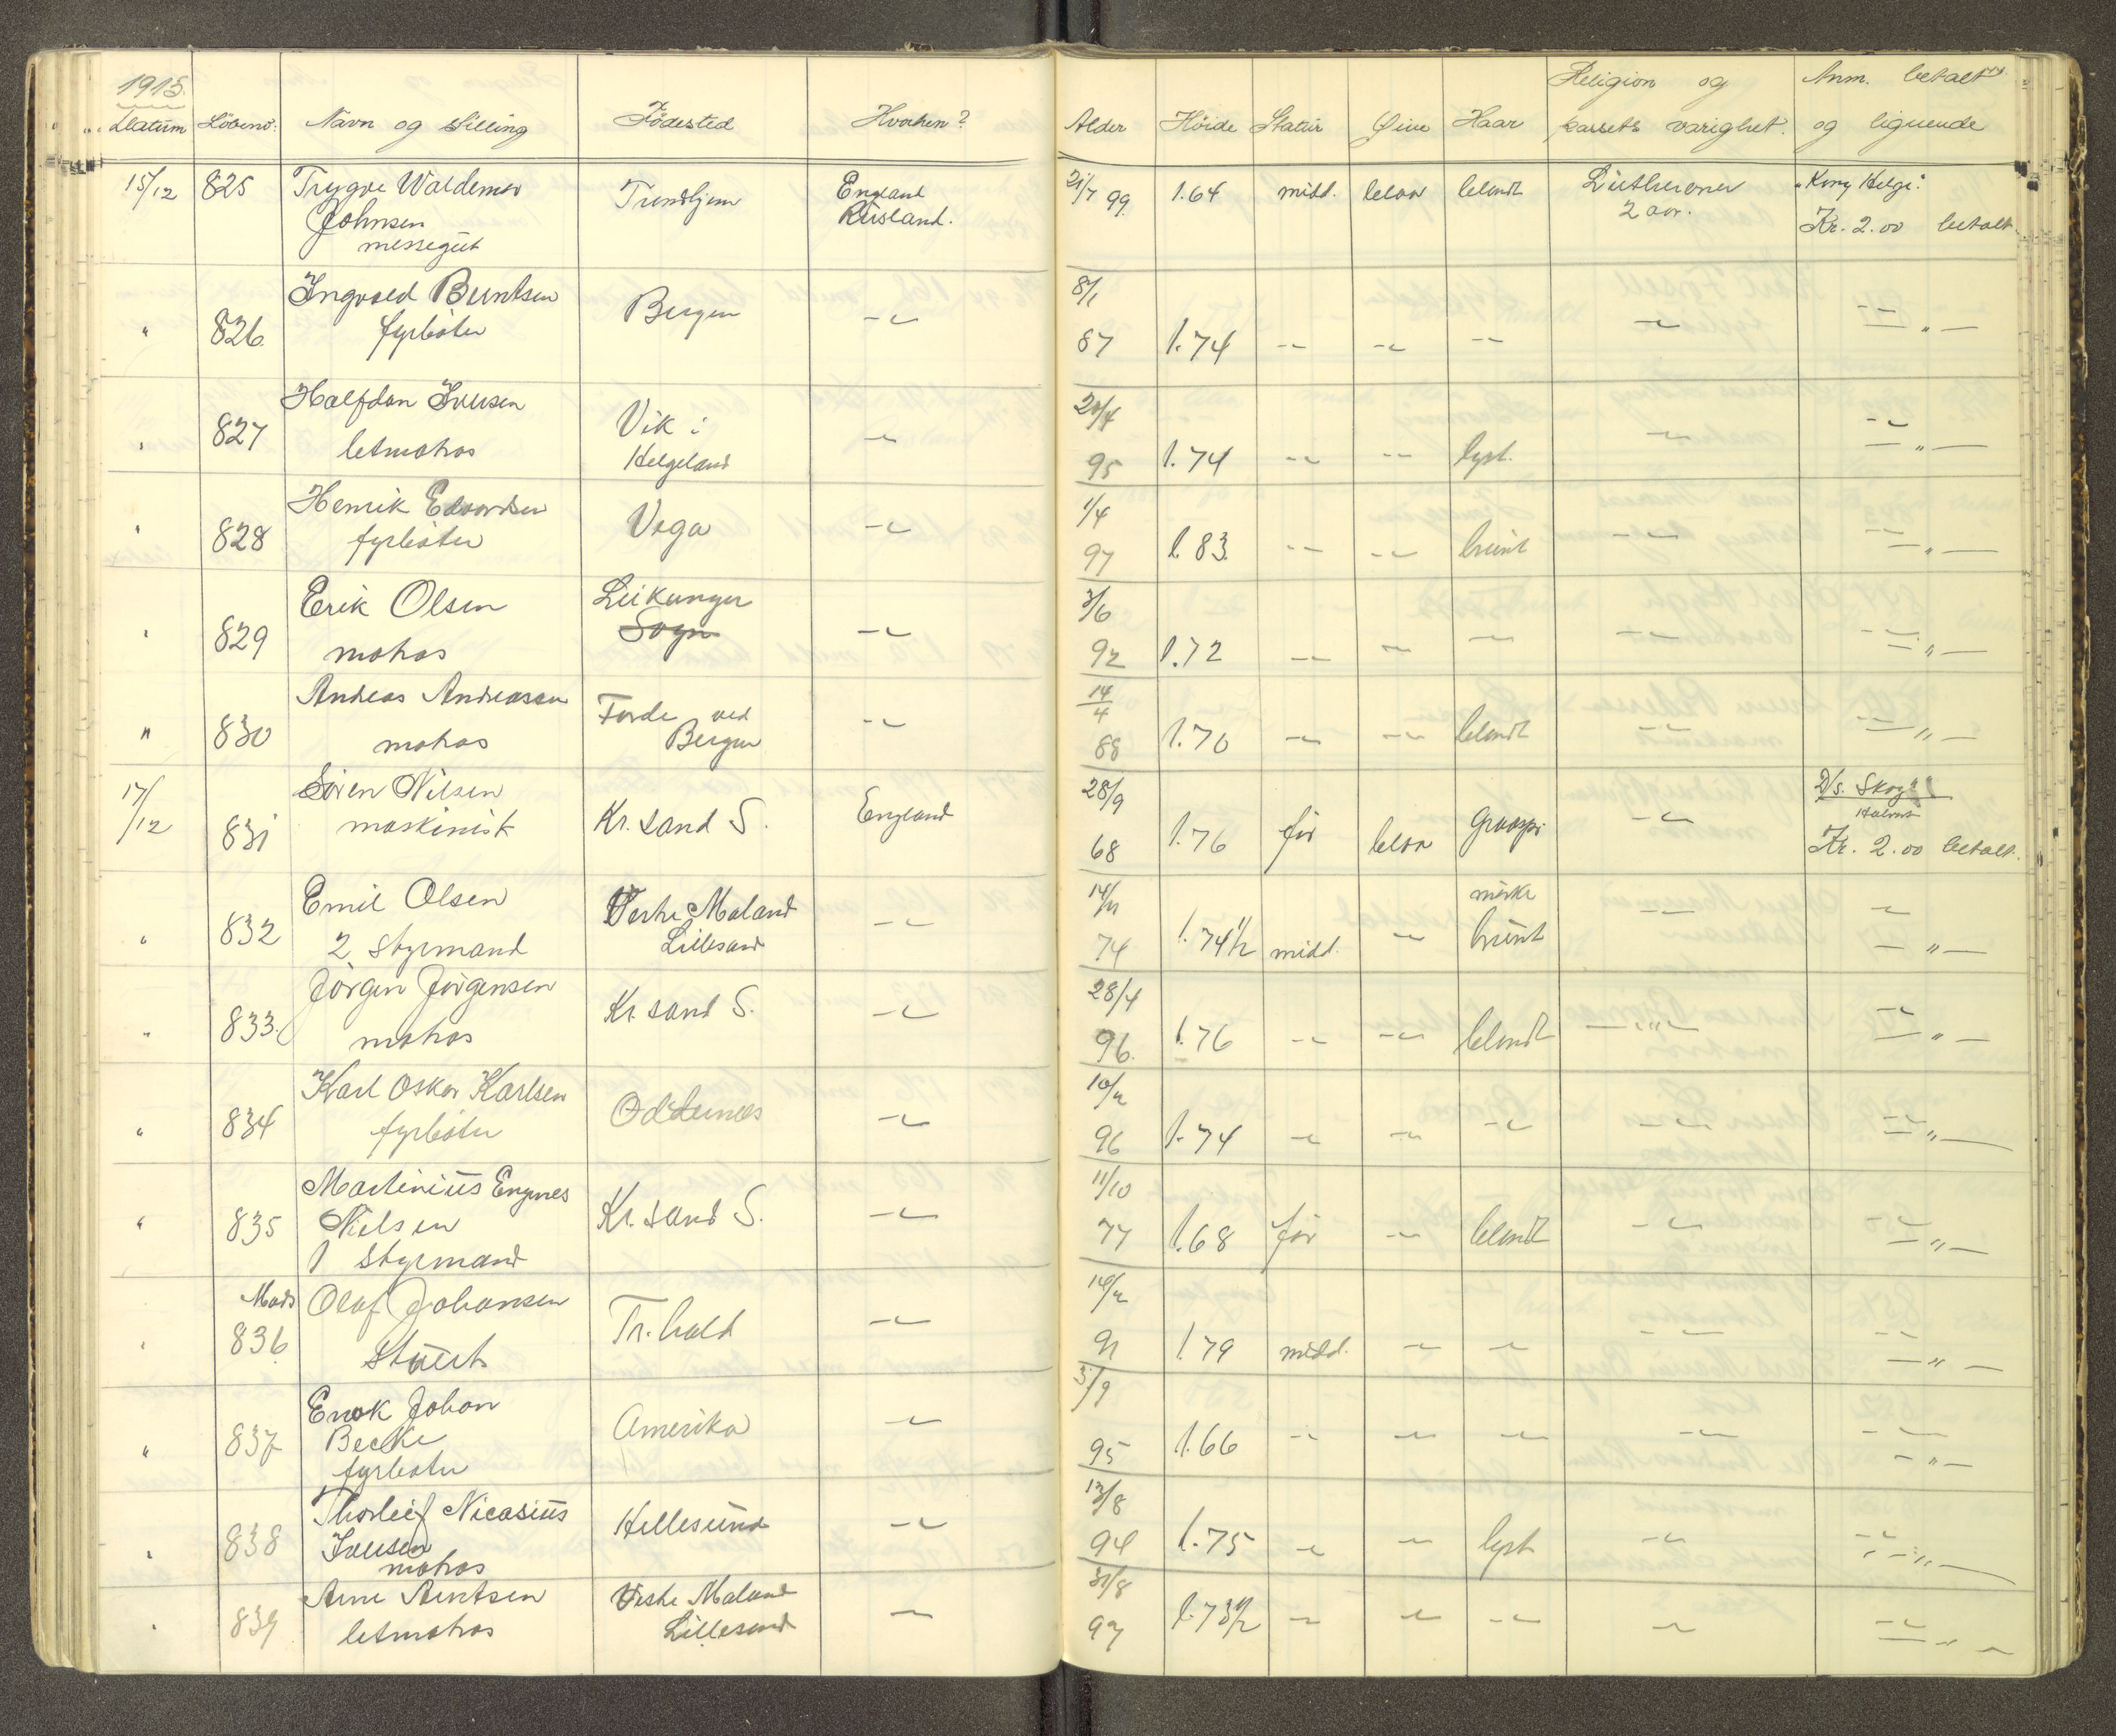 1915.
Datum Löbenr. Navn og stilling Födested Hvorhen? Alder Höide Statur Öine Haar Religion og passets varighet. Anm. betalt og lignende
15/12 825 Trygve Waldemar Johnsen messegut Trondhjem England Rusland. 21/7 99. 1.64 midd. blaa blondt Lutheraner 2 aar. "Kong Helge". Kr. 2.00 betalt.
" 826. Ingvald Berntsen fyrböter Bergen -"- 8/1 87 1.74 -"- -"- -"- -"- -"- -"-
" 827 Halfdan Iversen letmatros Vik i Helgeland -"- 20/4 95 1.74 -"- -"- lyst. -"- -"- -"-
" 828 Henrik Edvardsen fyrböter Vega -"- 1/4 97 1.83. -"- -"- brunt -"- -"- -"-
" 829 Erik Olsen matros Leikanger Sogn -"- 3/6 92 1.72 -"- -"- -"- -"- -"- -"-
" 830 Andreas Andreassen matros Förde ved Bergen -"- 14/4 88 1.70 -"- -"- blondt -"- -"- -"-
17/12 831 Sören Nilsen maskinist Kr. sand S. England 28/9 68 1.76 för blaa graaspr. -"- D/s. "Skog" Kr. 2.00 betalt.
" 832 Emil Olsen 2 styrmand Vestre Moland Lillesand -"- 14/11 74 1.74 1/2 midd. -"- mörke brunt -"- -"- -"-
" 833. Jörgen Jörgensen matros Kr. sand S. -"- 28/4 96. 1.76 -"- -"- blondt -"- -"- -"-
" 834 Karl Oskar Karlsen fyrböter Oddernes -"- 96 1.74 -"- -"- -"- -"- -"- -"-
" 835 Martinius Nielsen 1 styrmand Kr. sand S. -"- 11/10 77 1.68 för -"- blondt -"- -"- -"-
" 836. Mads Olaf Johansen Stuert Fr. hald -"- 91 1.79 midd. -"- -"- -"- -"- -"-
" 837 Enok Johan Becke fyrböter Amerika -"- 3/9 95 1.66 -"- -"- -"- -"- -"- -"-
" 838 Thorleif Nicasius Iversen matros Hellesund -"- 13/8 94 1.75 -"- -"- lyst -"- -"- -"-
" 839 Arne Arntsen letmatros Vestre Moland Lillesand -"- 31/8 97 1.73 1/2 -"- -"- -"- -"- -"- -"-